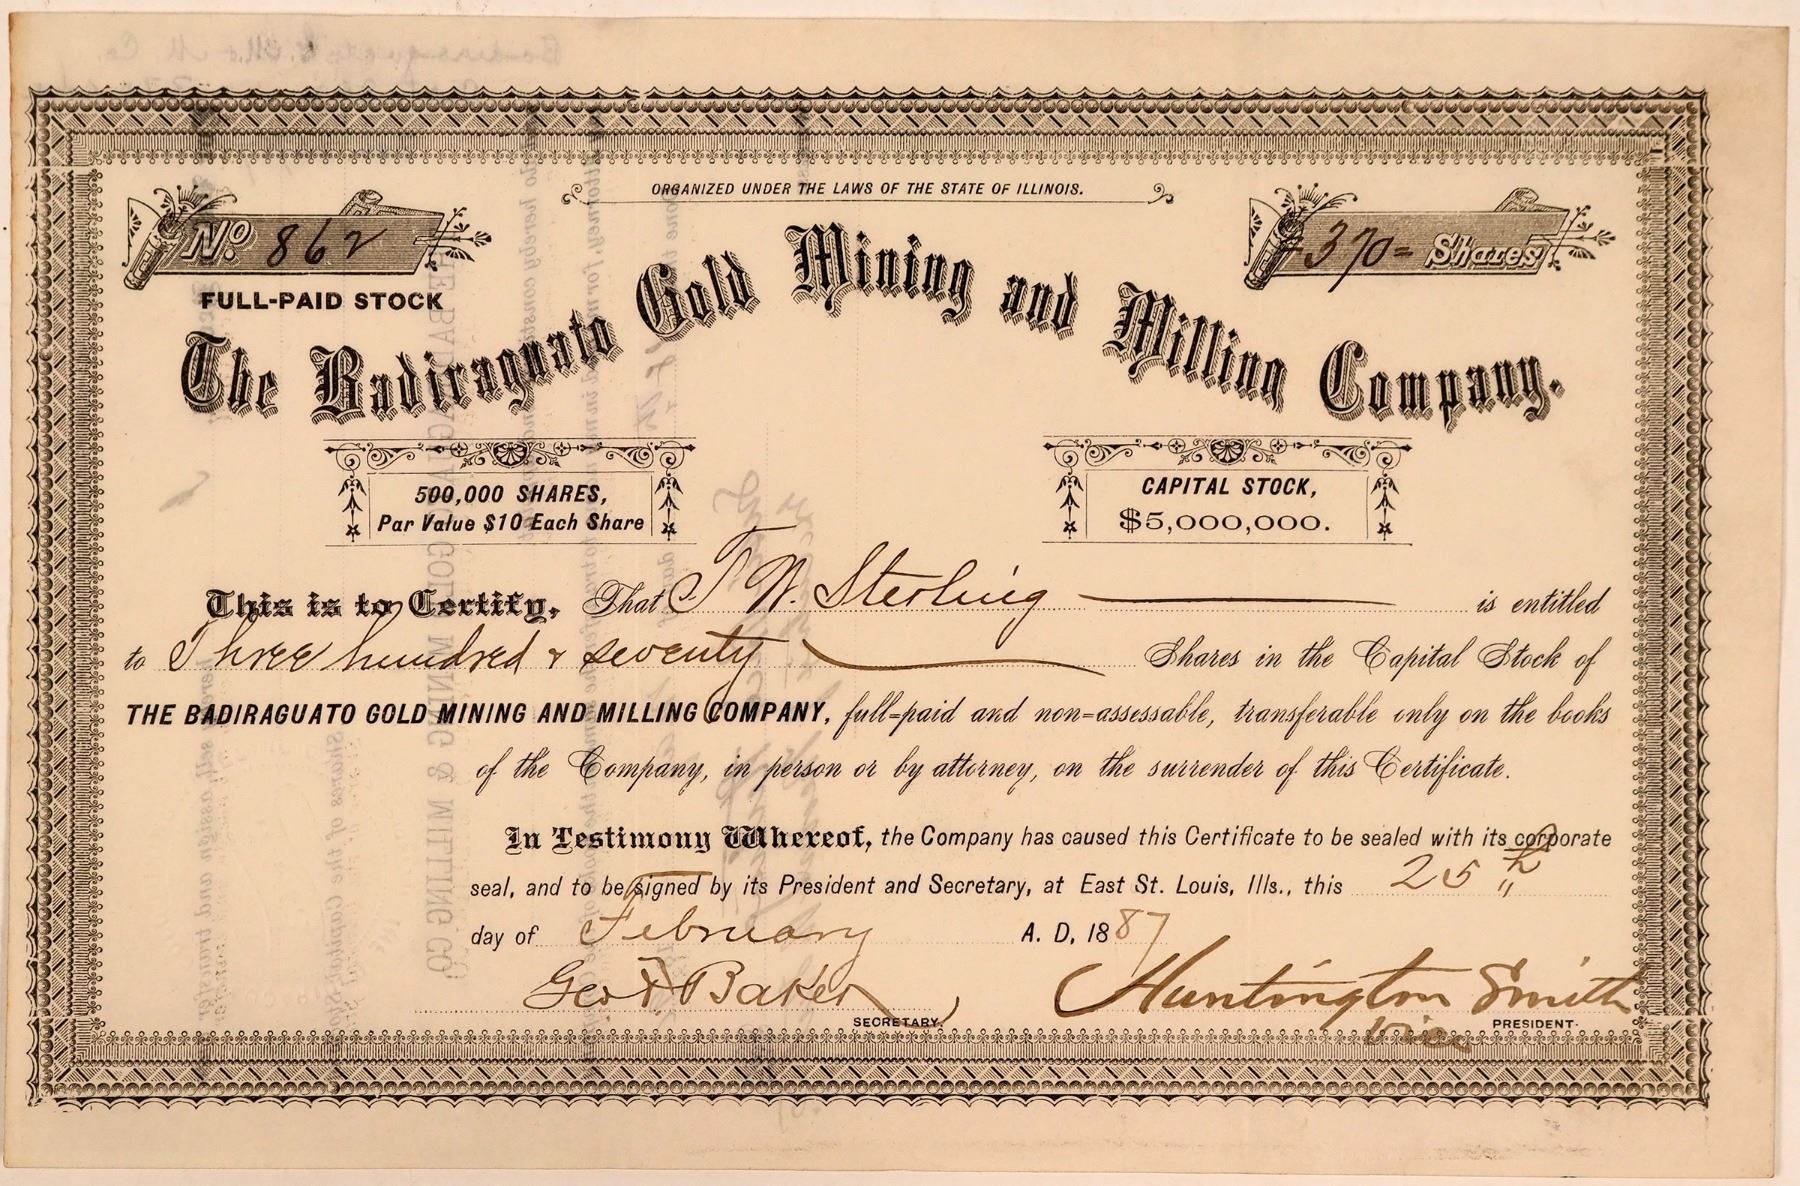 ORGANIZED UNDER THE LAWS OF THE STATE OF ILLINOIS.
No. 862
370= Shares
FULL-PAID STOCK
The Badiraguato Gold Mining and Milling Company.
500,000 SHARES,
Par Value $10 Each Share
CAPITAL STOCK,
$5,000,000.
This is to Certify, That T W. Sterling is entitled
to Three hundred & seventy Shares in the Capital Stock of
THE BADIRAGUATO GOLD MINING AND MILLING COMPANY, full=paid and non=assessable, transferable only on the books
of the Company, in person or by attorney, on the surrender of this Certificate.
In Testimony Whereof, the Company has caused this Certificate to be sealed with its corporate
seal, and to be signed by its President and Secretary, at East St. Louis, Ills., this 25th
day of February A. D. 1887
Geo F Baker Huntington Smith
SECRETARY. Vice PRESIDENT.